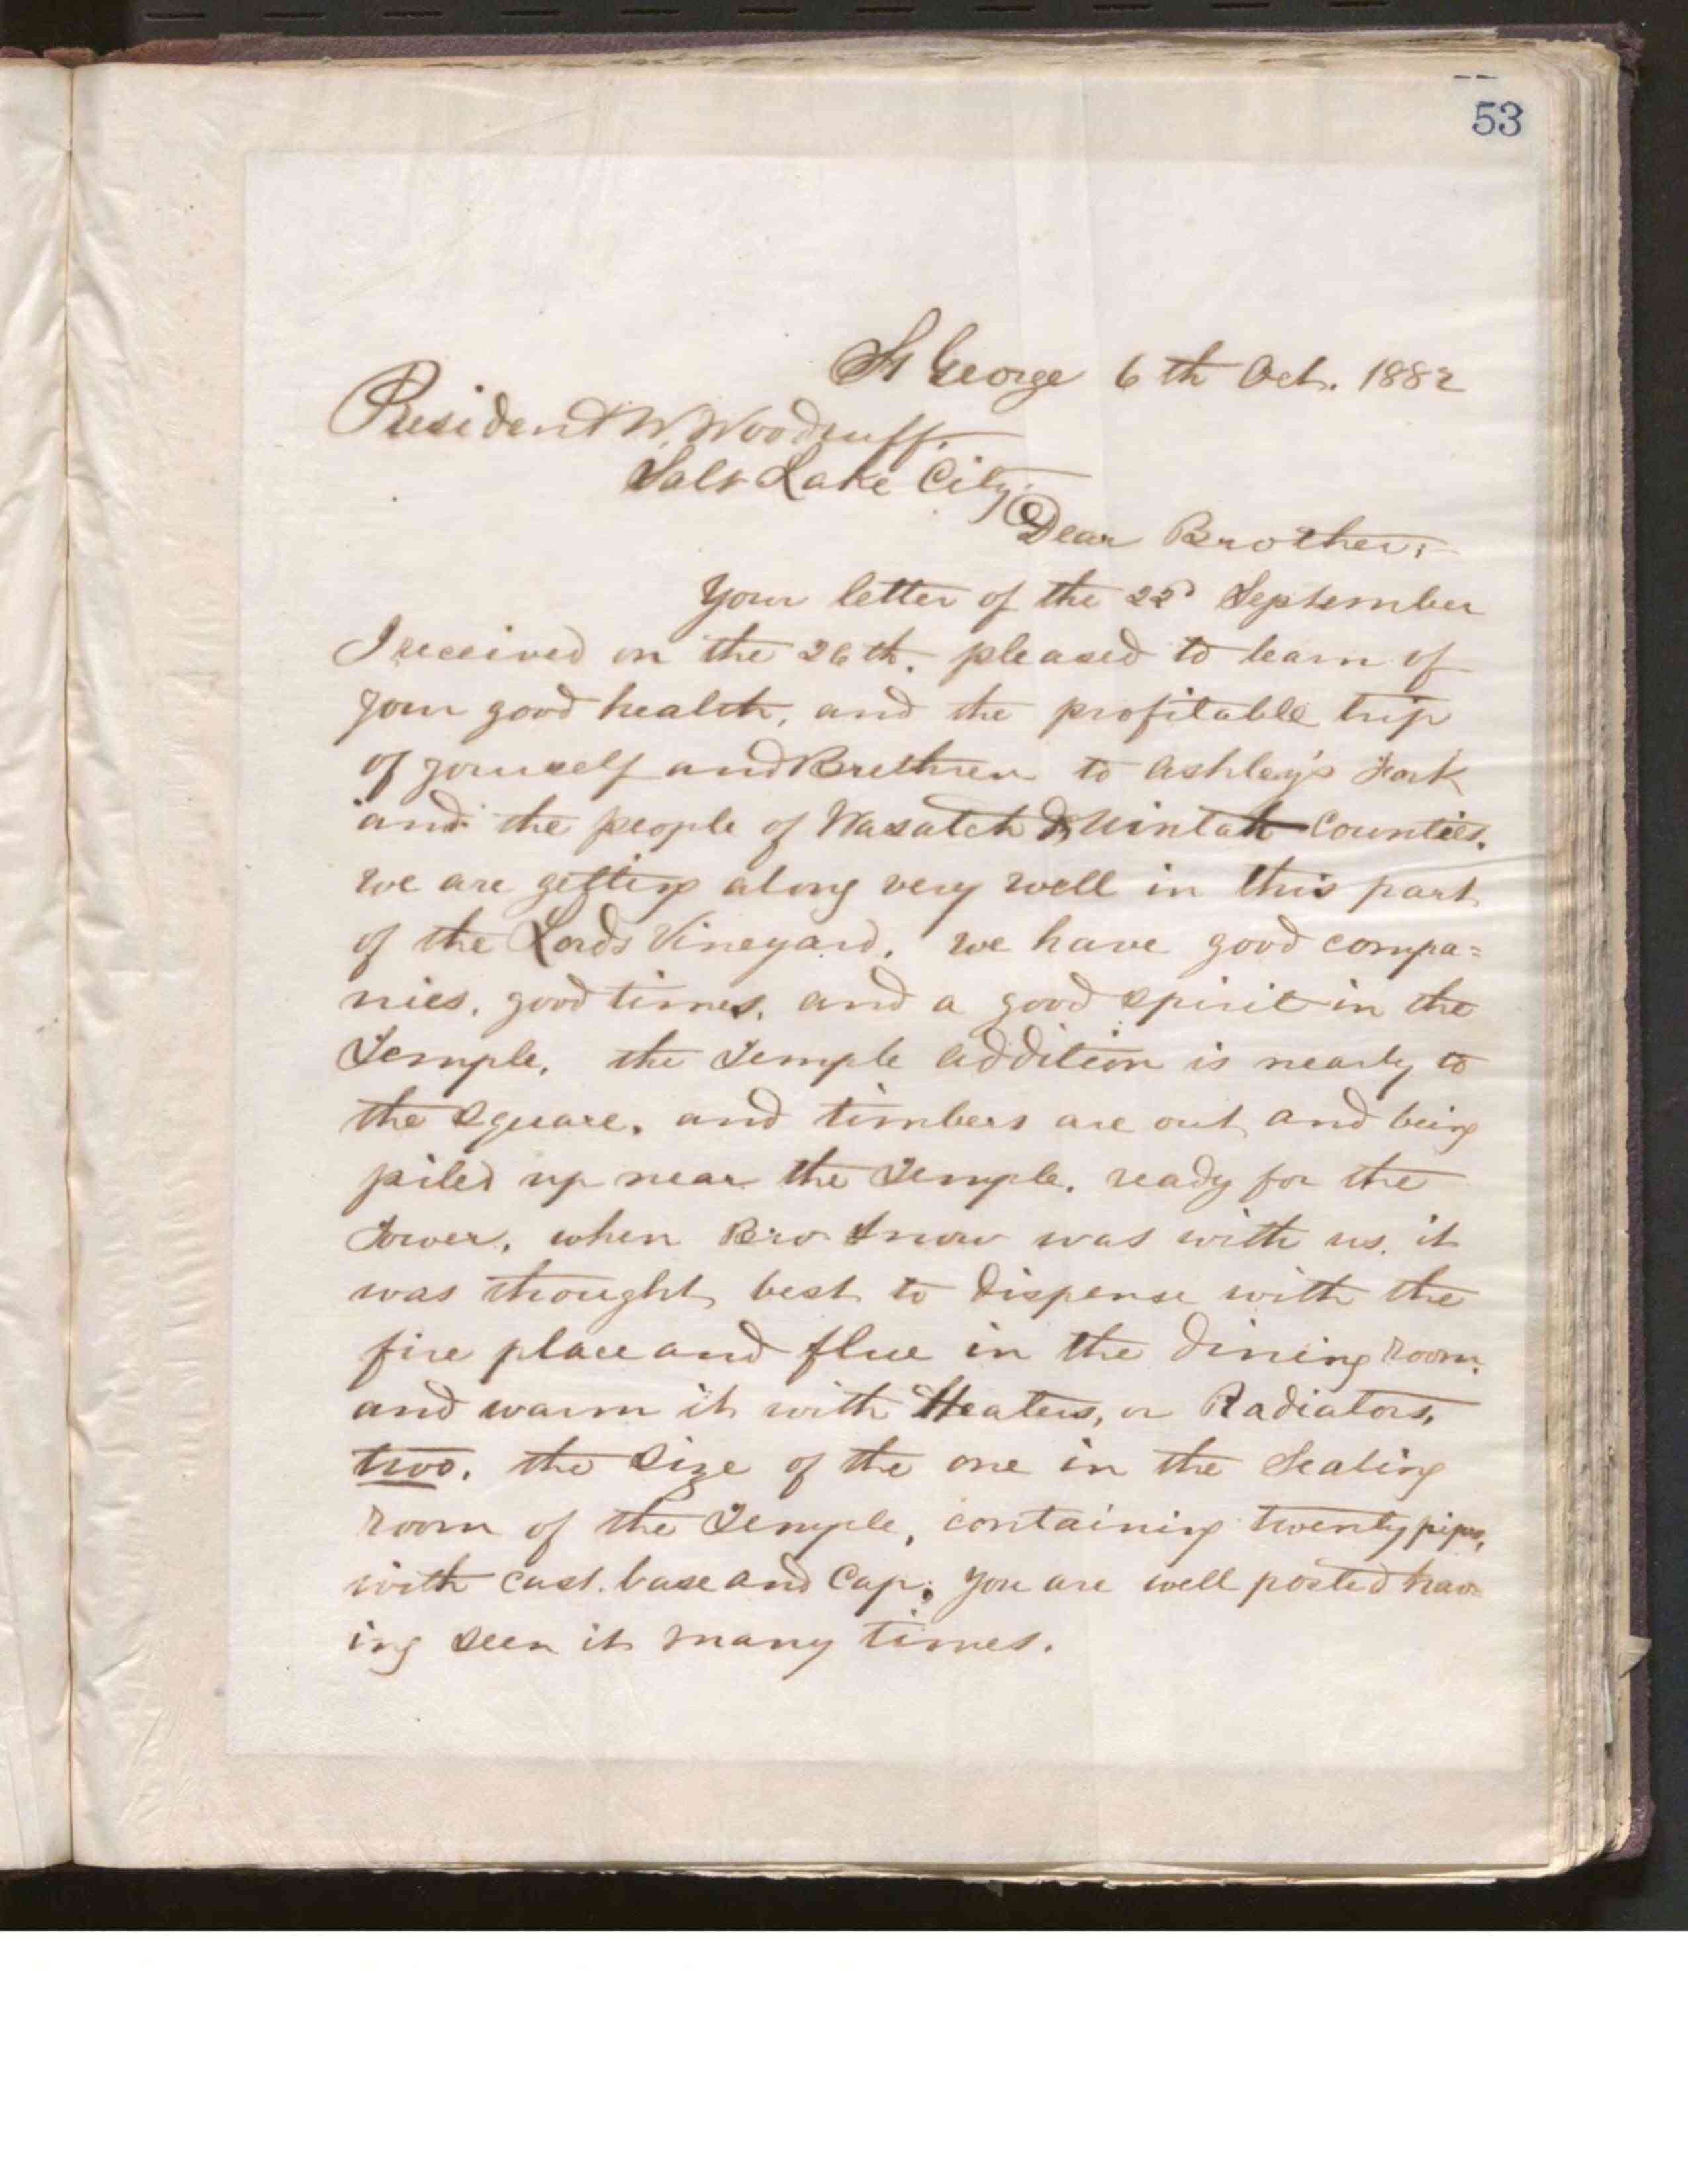 53
St George 6th Oct. 1882
President W. Woodruff.
Salt Lake City.
Dear Brother;
Your letter of the 22d September
I received on the 26th. pleased to learn of
your good health, and the profitable trip
of yourself and Brethren to Ashley's Fork
and the people of Wasatch & Uintah Counties.
we are getting along very well in this part
of the Lords Vineyard. we have good compa=
nies, good times, and a good spirit in the
Temple. the Temple addition is nearly to
the square. and timbers are out and being
piled up near the Temple. ready for the
Tower. when Bro Snow was with us. it
was thought best to dispense with the
fire place and flue in the dining room.
and warm it with Heaters, or Radiators,
two. the size of the one in the Sealing
room of the Temple, containing twenty pipes,
with cast. base and Cap; you are well posted hav-
ing seen it many times.